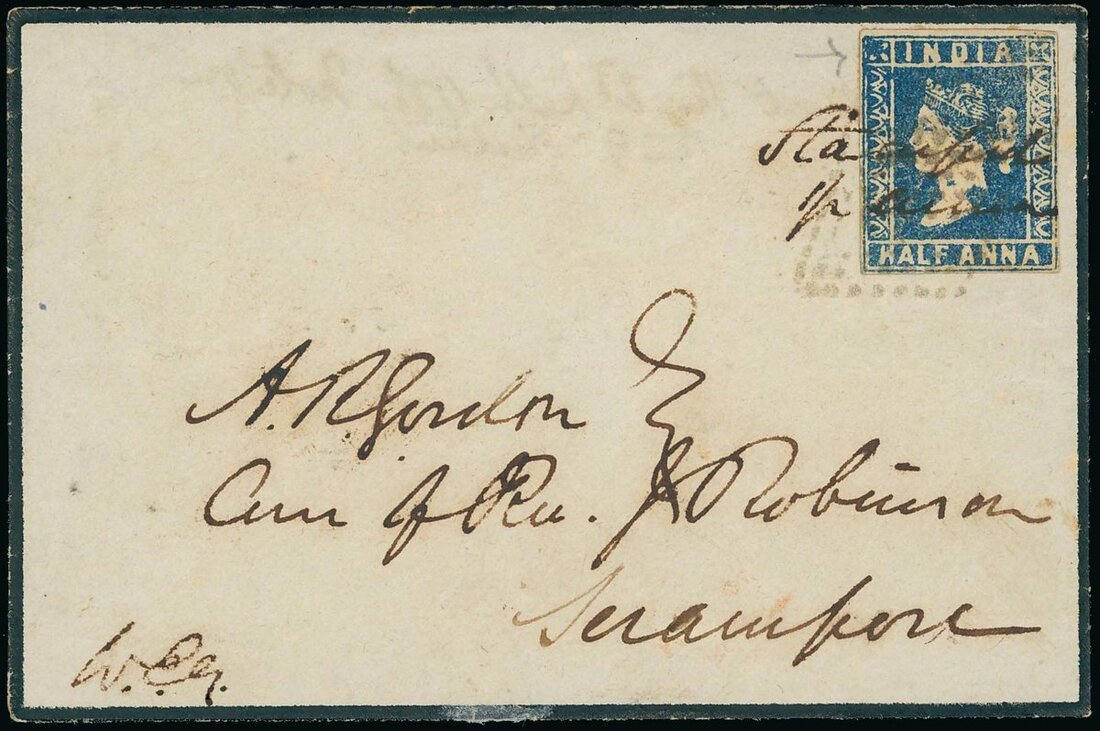 INDIA
Stamped
1/2 anna
HALF ANNA
A. R. Gordon Esq
Care of Rev. J Robinson
Serampore
W. G.